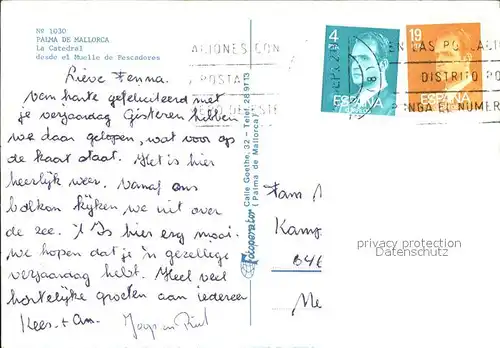 Nº 1030
PALMA DE MALLORCA
La Catedral
desde el Muelle de Pescadores
Lieve Fenna.
Van harte gefeliciteerd met
je verjaardag Gisteren hebben
we daar gelopen, wat voor op
de kaart staat. Het is hier
heerlijk weer. Vanaf ons
balkon kijken we uit over
de zee. 't Is hier erg mooi.
We hopen dat je 'n gezellige
verjaardag hebt. Heel veel
hartelijke groeten aan iedereen
Kees. + An.
Fotoperator
Calle Goethe, 32 - Telef. 28 97 13
( Palma de Mallorca )
4
PTA
ESPAÑA
19
PTA
ESPAÑA
CIONES CON
POSTA
EN LAS POBLACIO
DISTRITO PO
PONGA EL NUMER
Fam
Kamp
B46
Me
privacy protection
Datenschutz